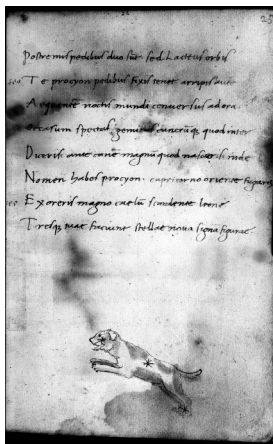 25
Postremis pedibus duo sūt sed Lacteus orbis
Te procyon pedibus fixis tenet arripis aute
A oquinte noctis mundi conversus adora.
Occasum spectas geminis cancrūq; quod inter
Diceris ante canē magnū quod nasceris inde
Nomen habes procyon. capricorno oriente fugaris
Exoreris magno caelū scandente leone
Tresq; tuae faciunt stellae nova signa figurae